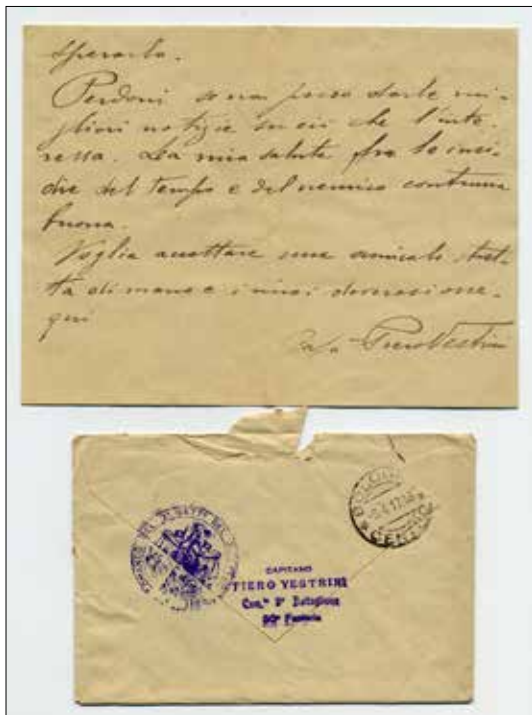 sperarlo.
Perdoni se non posso darle mi-
gliori notizie su ciò che l'inte-
ressa. La mia salute fra le insi-
die del tempo e del nemico continua
buona.
Voglia accettare una amicale stret-
ta di mano e i miei doverosi osse-
qui
Piero Vestrini
BOLOGNA
CENTRO
CAPITANO
PIERO VESTRINI
Com.te Battaglione
Fanteria